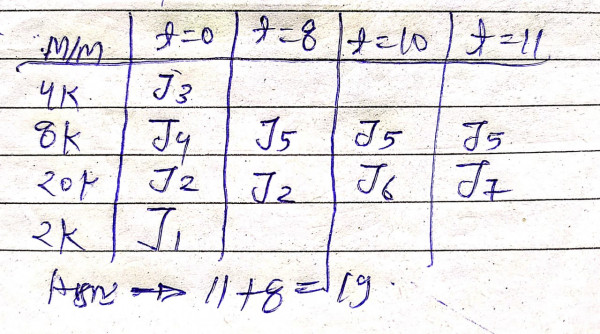 M/M t=0 t=8 t=10 t=11
4K J3
8K J4 J5 J5 J5
20K J2 J2 J6 J7
2K J1
Ans → 11+8=19.